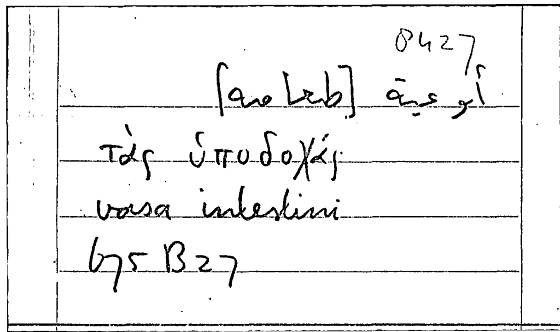 0427
أوعية
τὰς ὑποδοχάς
vasa intestini
675 B27